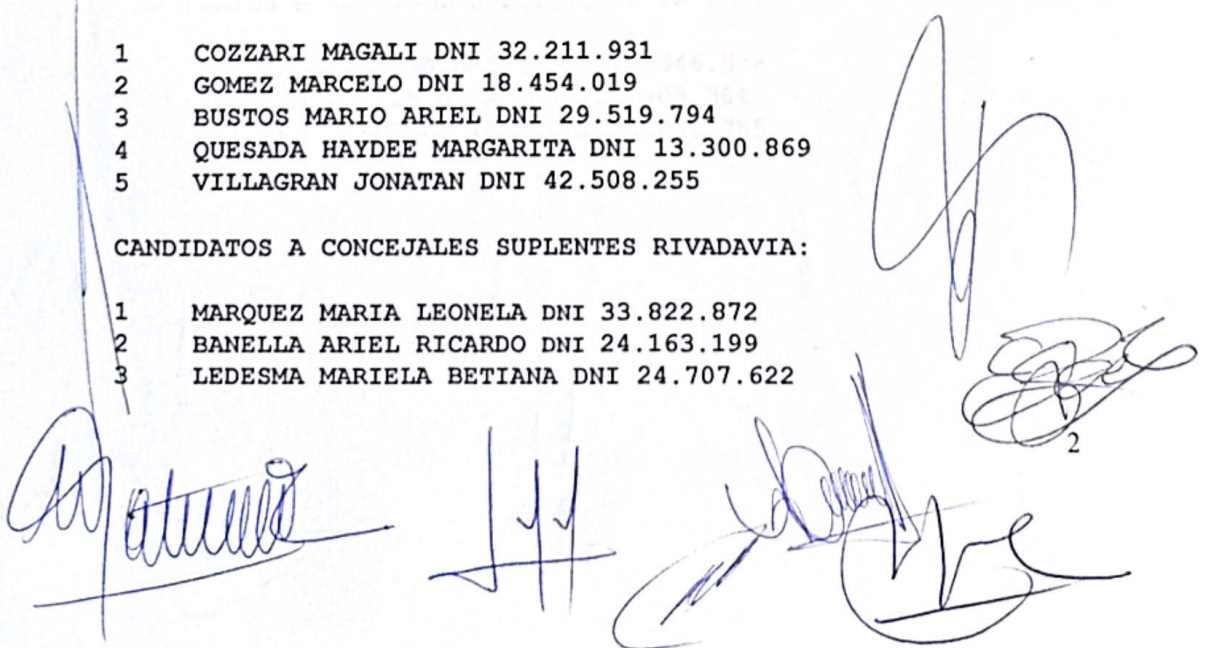 1 COZZARI MAGALI DNI 32.211.931
2 GOMEZ MARCELO DNI 18.454.019
3 BUSTOS MARIO ARIEL DNI 29.519.794
4 QUESADA HAYDEE MARGARITA DNI 13.300.869
5 VILLAGRAN JONATAN DNI 42.508.255
CANDIDATOS A CONCEJALES SUPLENTES RIVADAVIA:
1 MARQUEZ MARIA LEONELA DNI 33.822.872
2 BANELLA ARIEL RICARDO DNI 24.163.199
3 LEDESMA MARIELA BETIANA DNI 24.707.622
2